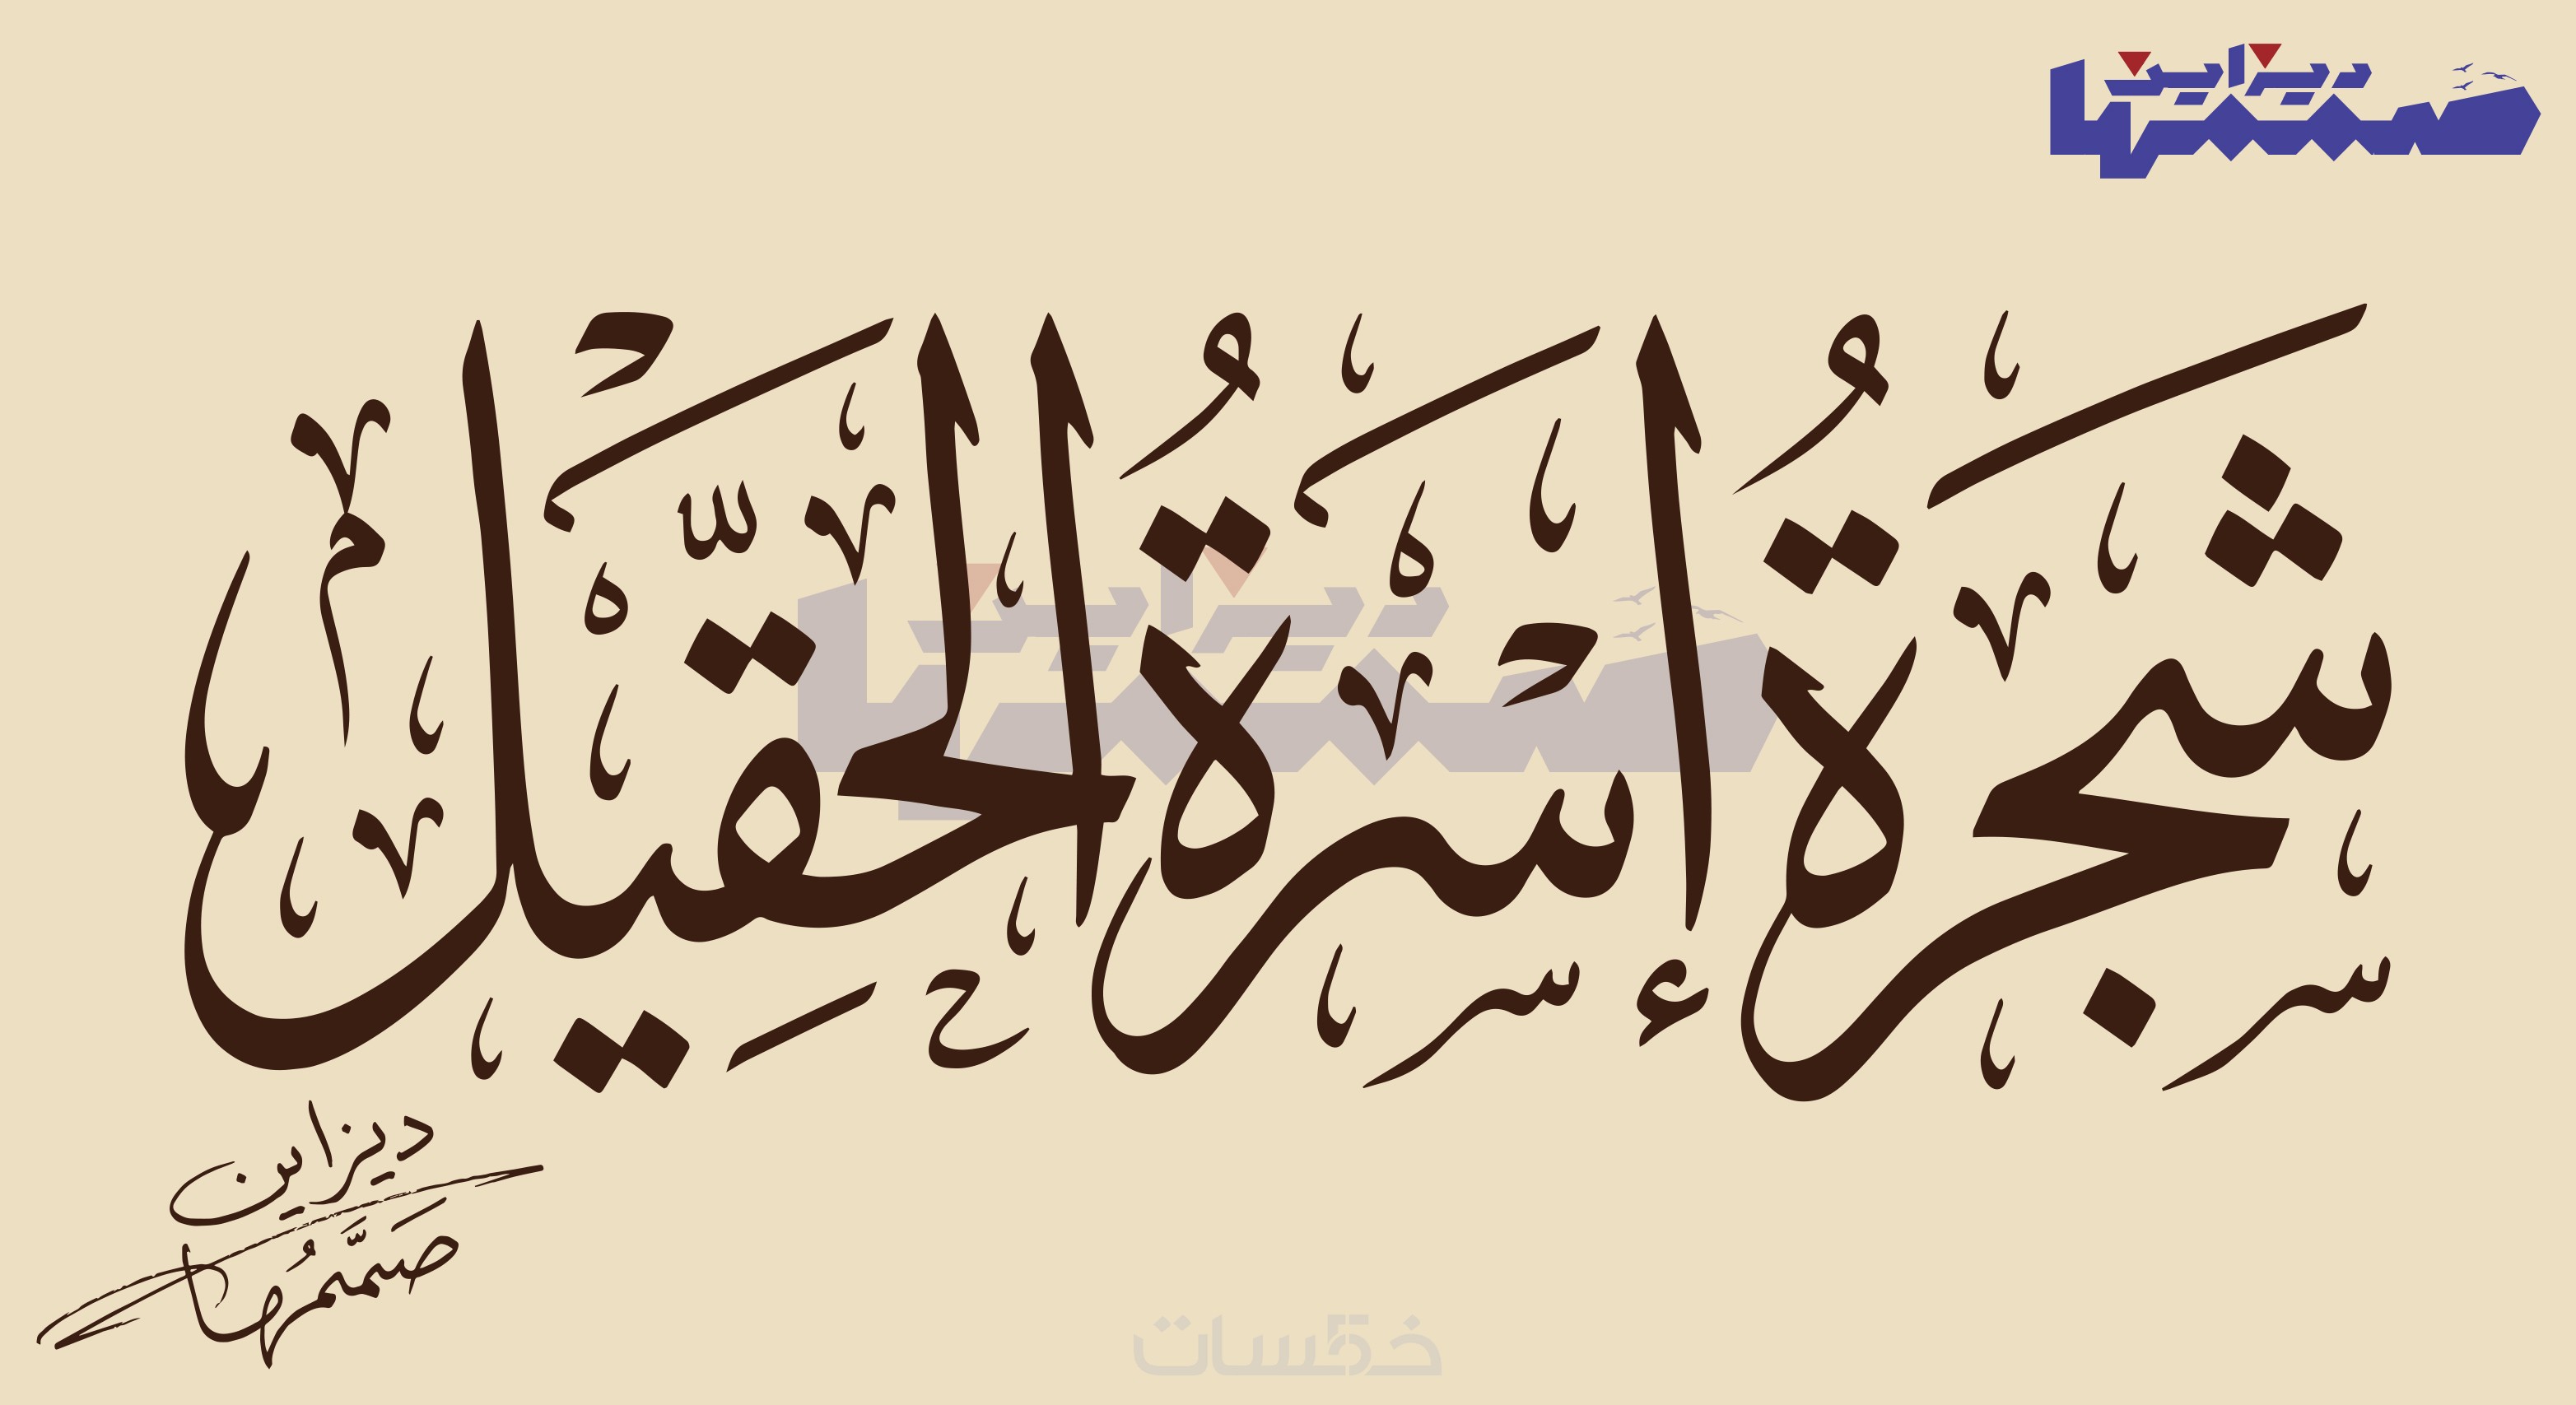 ديزاين
صممها
شَجَرَةُ أُسْرَةُ الحُقَيِل
ديزاين
صَمَّمُها
خمسات